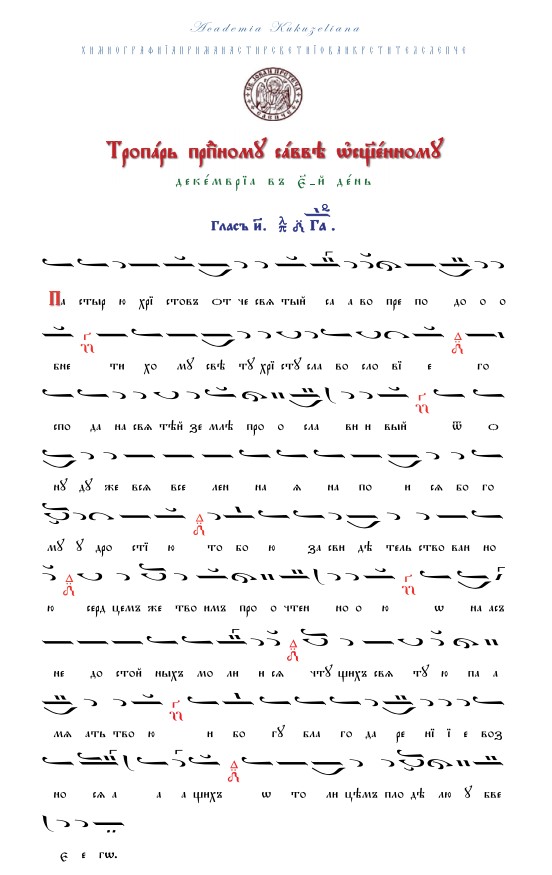 Academia Kukuzeliana
ХИМНОГРАФИЇАПРИМАНАСТИРСВЕТИЇОВАНКРСТИТЕЛСЛЕПЧЕ
СВ. ІОВАН ПРЕТЕЧА СЛЕПЧЕ
Тропа́рь прпⷣному са́ввѣ ѡ҆сщ҃е́нному
деке́мврїа въ є҃-й де́нь
Гласъ и҃. Га.
Па стыр ю хрї стовъ от че свѧ тый са а во пре по до о о
бне ти хо му свѣ ту хрї сту сла во сло вї е го
спо да на свѧ тѣй зе млѣ про о сла ви и вый ѿ о
нꙋ дꙋ же всѧ все лен на ѧ на по и сѧ бо го
мꙋ ꙋ дро стї ю то бо ю за сви дѣ тель ство ван но
ю серд цемъ же тво имъ про о чтен но о ю ѡ на асъ
не до стой ныхъ мо ли и сѧ чтꙋ щихъ свѧ тꙋ ю па а
мѧ ать тво ю и бо гꙋ бла го да ре нї ї е воз
но сѧ а а а щихъ ѡ то ли цѣмъ пло дѣ лю ꙋ бве
є е гѡ.